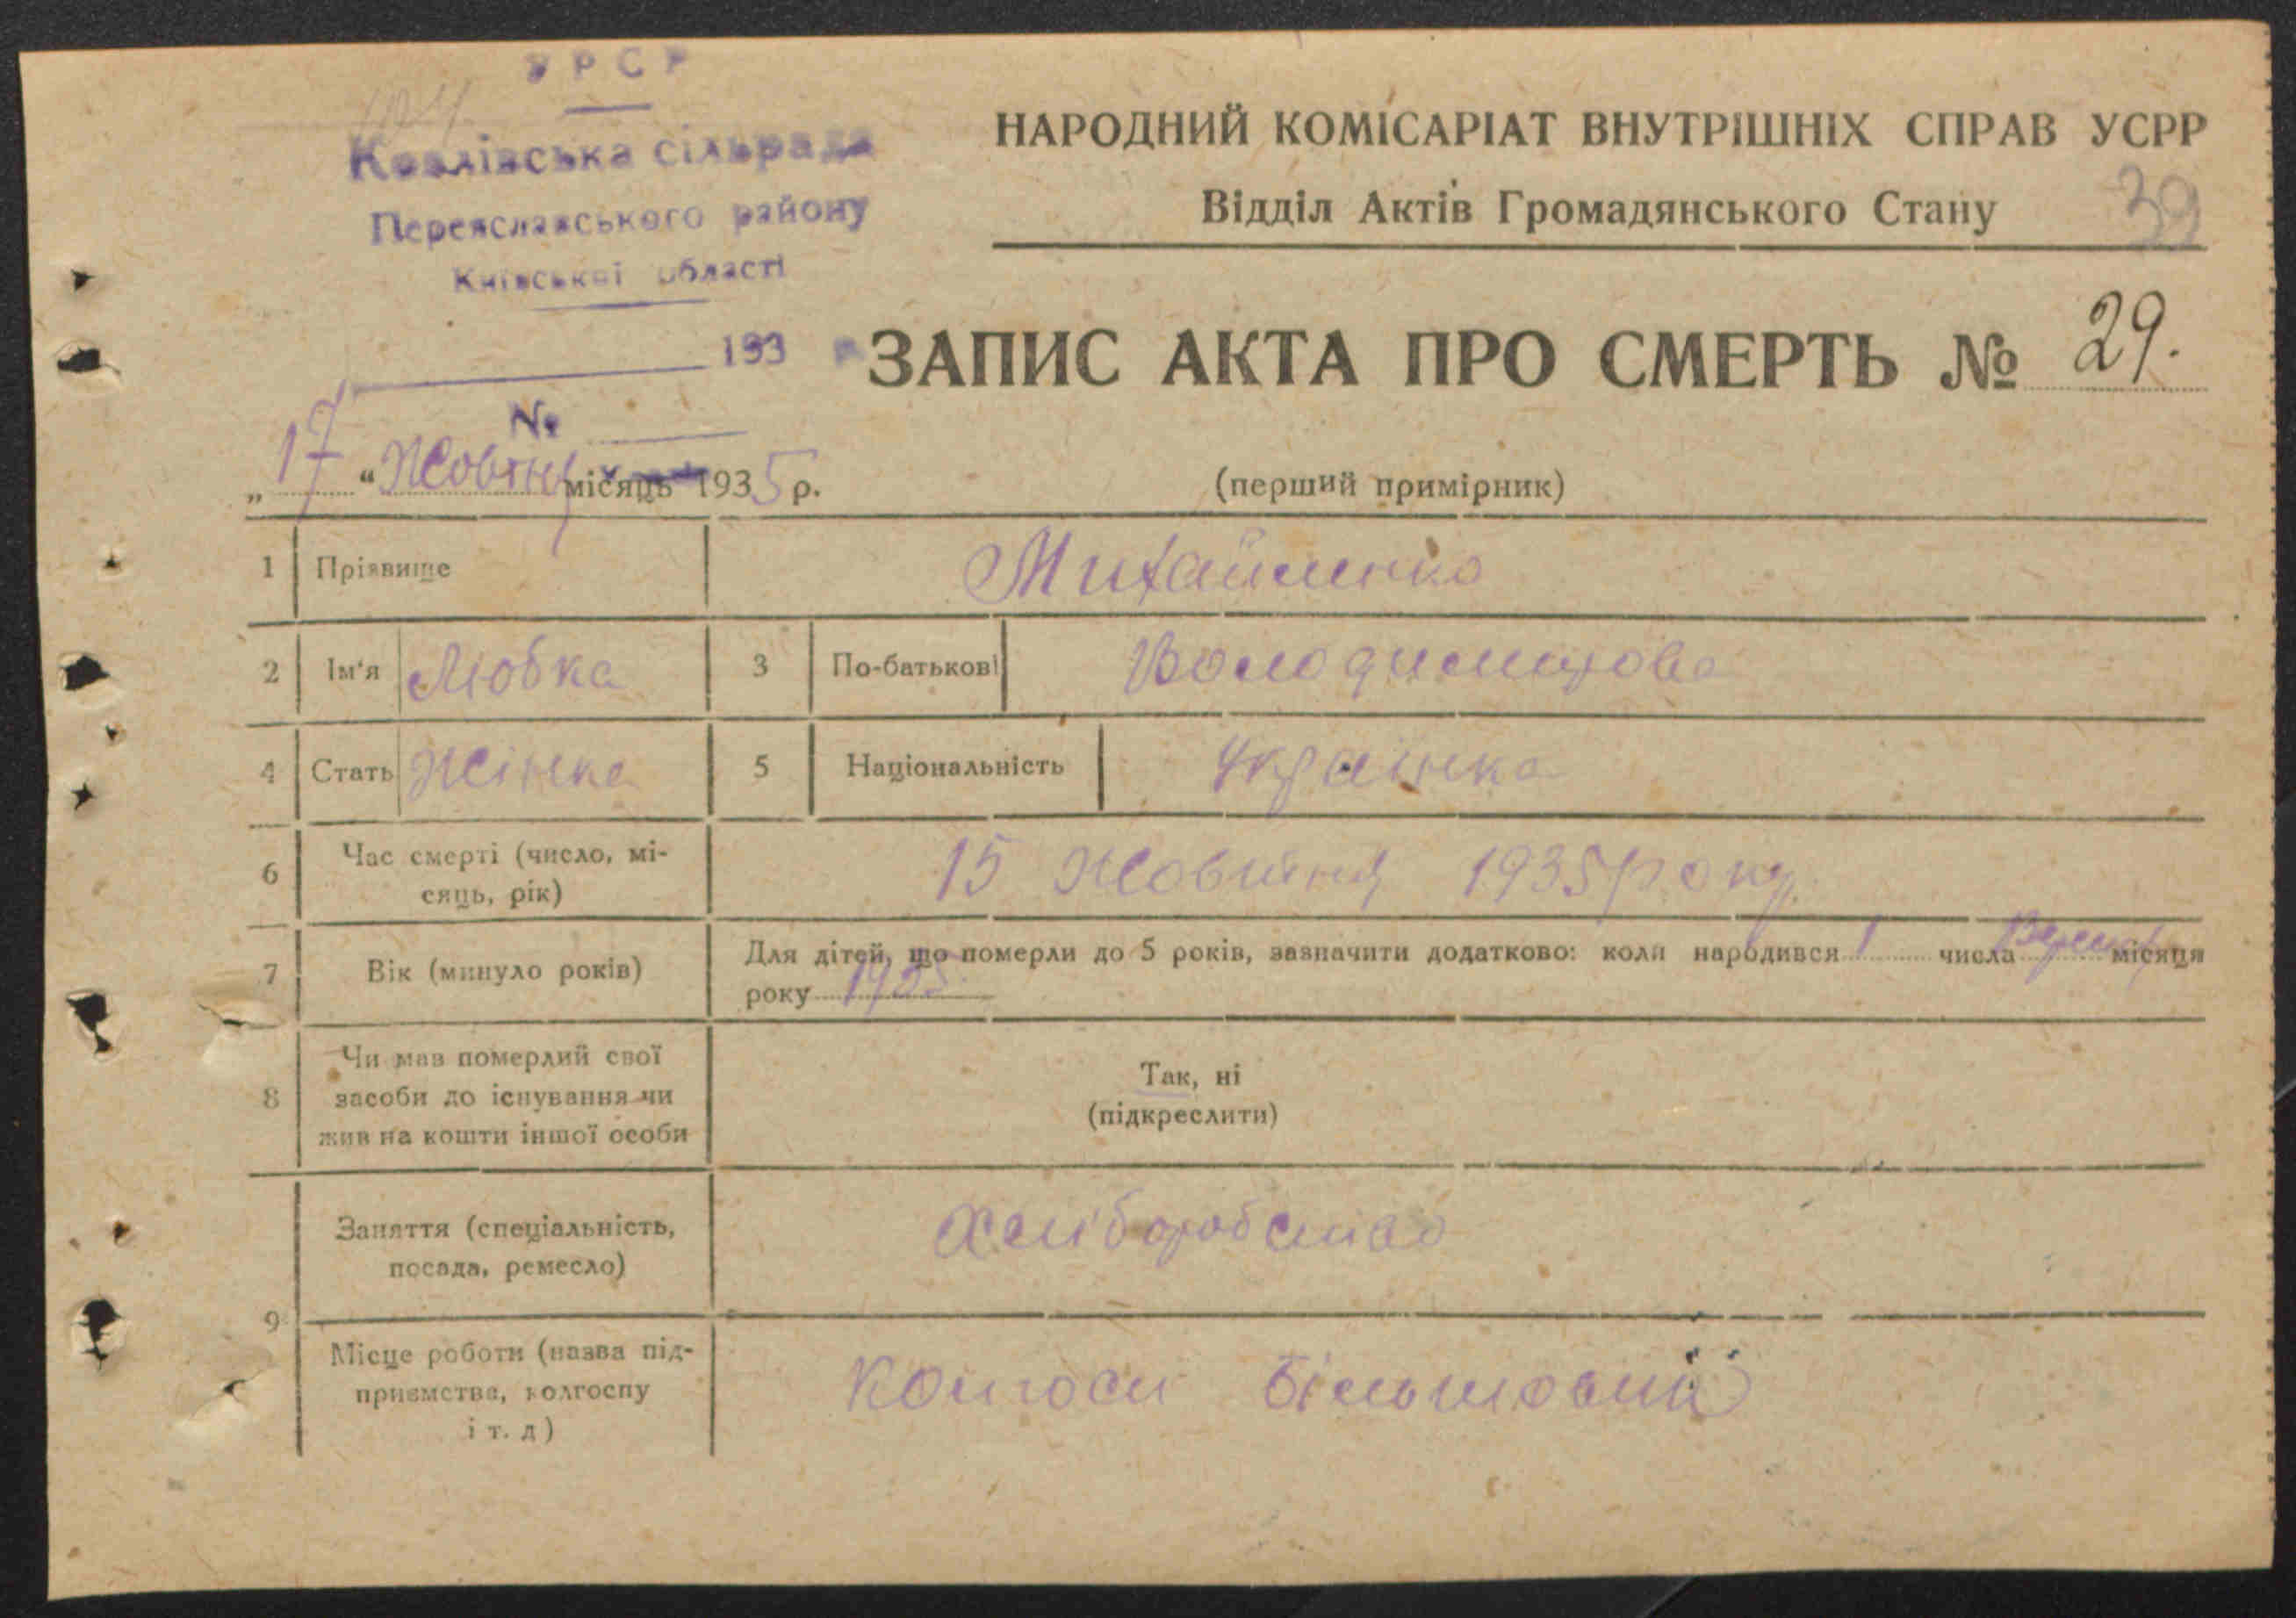 УРСР
Козлівська сільрада
Переяславського району
Київської області
193
№
НАРОДНИЙ КОМІСАРІАТ ВНУТРІШНІХ СПРАВ УСРР
Відділ Актів Громадянського Стану
39
ЗАПИС АКТА ПРО СМЕРТЬ № 29.
„17“ Жовтня місяць 1935 р.
(перший примірник)
1 Прізвище Михайленко
2 Ім'я Любка 3 По-батькові Володимирова
4 Стать Жінка 5 Національність Українка
6 Час смерті (число, мі-
сяць, рік)
15 Жовтня 1935 року.
7 Вік (минуло років)
Для дітей, що померли до 5 років, зазначити додатково: коли народився 1 числа Вересня місяця
року 1935
8 Чи мав померлий свої
засоби до існування чи
жив на кошти іншої особи
Так, ні
(підкреслити)
9
Заняття (спеціальність,
посада, ремесло)
Хліборобство
Місце роботи (назва під-
приємства, колгоспу
і т. д)
Колгосп